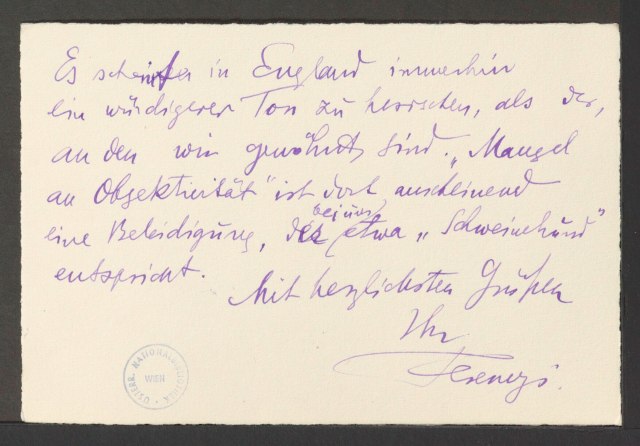 Es scheint in England immerhin
ein würdigerer Ton zu herrschen, als der,
an den wir gewöhnt sind. „Mangel
an Objektivität" ist dort anscheinend
eine Beleidigung, die bei uns etwa „Schweinehund"
entspricht.
Mit herzlichsten Grüßen
Ihr
Ferenczi.
ÖSTERR. NATIONALBIBLIOTHEK
WIEN